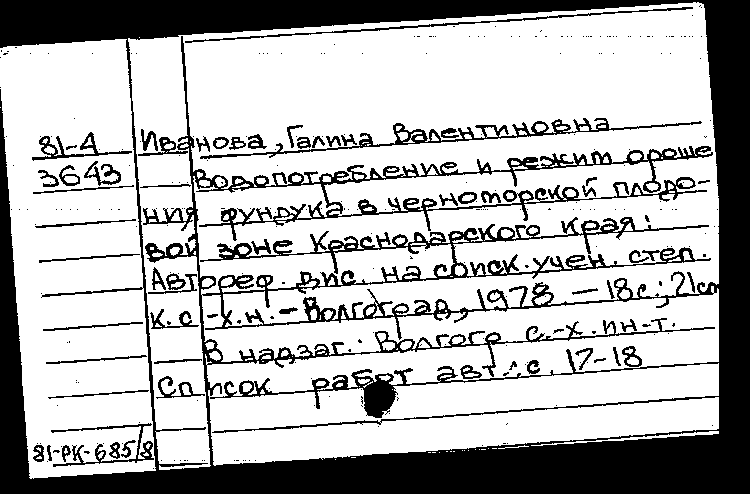 81-4 Иванова, Галина Валентиновна
3643 Водопотребление и режим ороше
ния фундука в черноморской плодо-
вой зоне Краснодарского края:
Автореф. дис. на соиск. учен. степ.
к. с.-х. н. - Волгоград, 1978. - 18с.; 21см
В надзаг.: Волгогр с.-х. ин-т.
Список работ авт.: с. 17-18
81-РК-685/8